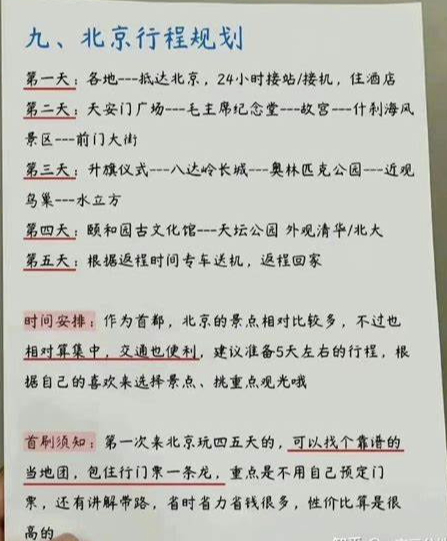 九、北京行程规划
第一天：各地---抵达北京，24小时接站/接机，住酒店
第二天：天安门广场---毛主席纪念堂---故宫---什刹海风
景区---前门大街
第三天：升旗仪式---八达岭长城---奥林匹克公园---近观
鸟巢---水立方
第四天：颐和园古文化馆---天坛公园 外观清华/北大
第五天：根据返程时间专车送机，返程回家
时间安排：作为首都，北京的景点相对比较多，不过也
相对算集中，交通也便利，建议准备5天左右的行程，根
据自己的喜欢来选择景点、挑重点观光哦
首刷须知：第一次来北京玩四五天的，可以找个靠谱的
当地团，包住行门票一条龙，重点是不用自己预定门
票，还有讲解带路，省时省力省钱很多，性价比算是很
高的
知乎